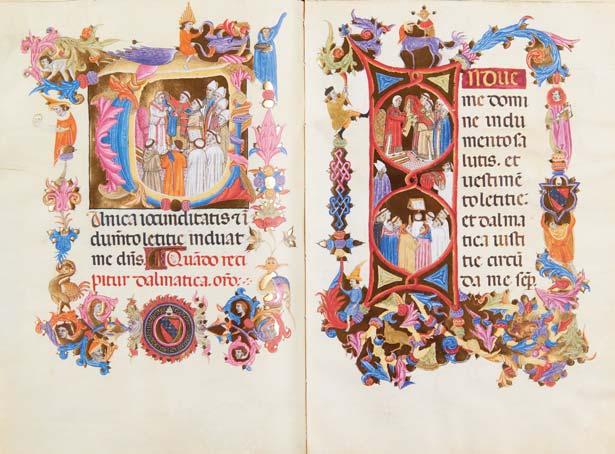 unica iocunditatis ⁊ ĩ
dum̃to letitie induat
me dñs. Quãdo reci
pitur dalmatica. orõ.
Indue
me domi
ne indu
mento sa
lutis. et
uestimẽ
to letitie:
et dalma
tica iusti
tie circũ
da me sep̱.